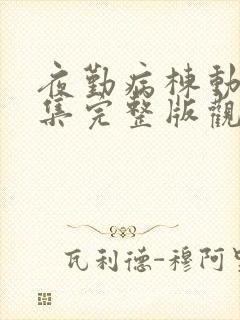 夜勤病棟動
集完整版觀
瓦利德-穆阿